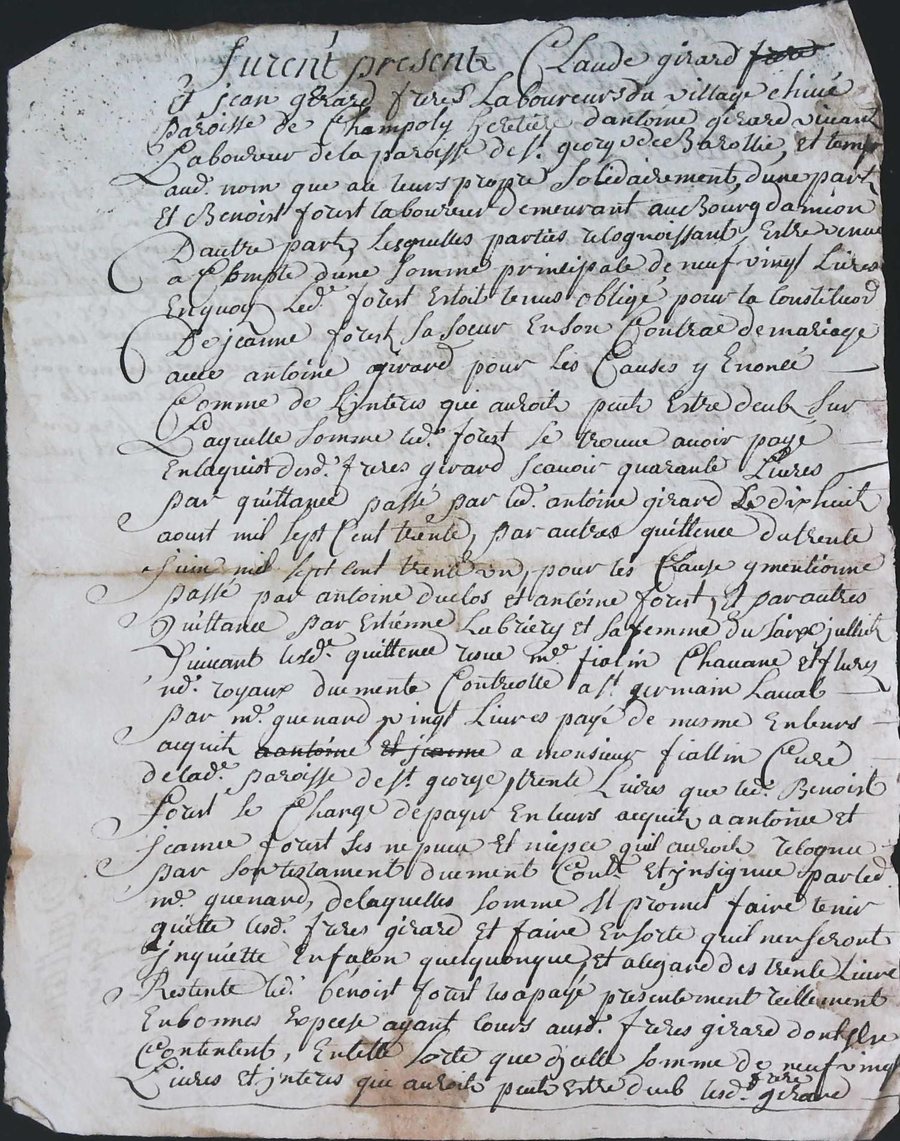 furent present Claude girard frere
Et jean girard freres Laboureurs du village
paroisse de Champoly heretiers dantoine girard vivant
Laboureur de la paroisse de st. george de Barollie, et tems
aud. nom que de leurs propre solidairement, dune part
Et Benoist forest laboureur demeurant au Bourg damion
Dautre part, Lesquelles parties recognoissant Estre venue
a Compte dune somme principale de neuf vingt Livres
Enquoy Led. forest Estoit tenus obligé, pour la Constituon
De jeanne forest sa soeur En son Contrac de mariage
avec antoine girard pour Les Causes y Enoncé
Comme de Linteres que auroit peut Estre deub sur
Laquelle somme led. forest se trouve avoir payé
En laquist desd. freres girard scavoir quarante Livres
par quittance passé par led. antoine girard Le dix huit
aoust mil sept Cent trente, par autres quittence du trente
juin mil sept cent trente un, pour les Clause y mentionne
passé par antoine duclos et antoine forest, Et par autres
quittance par Estienne Labriery et sa femme du juillet
suivant lesd. quittence resue me. fialin Chavane et
nd. royaux duement Controlle a st. germain Laval
par me. quenard vingt Livres payé de mesme En leurs
acquit a antoine et jeanne a monsieur fiallin Curé
de lad. paroisse de st. george, trente Livres que led. Benoist
forest se Charge de payer En leurs acquit a antoine et
jeanne forest ses nepveu et niepce quil auroit recogneu
par son testament duement Contr. Et jnsignue par led.
me. quenard, de laquelles somme Il promet faire tenir
quitte lesd. freres girard et faire En sorte quil nen seront
jnquiette En façon quelquonque, et a legard des trente Livre
Restente led. benoist forest les a payé presentement reellement
En bonnes Expece ayant Cours ausd. freres girard dont
Contentent, En telle sorte que dicelle somme de neuf vingt
Livres et jnteres que auroit peut Estre deub lesd. frere girard